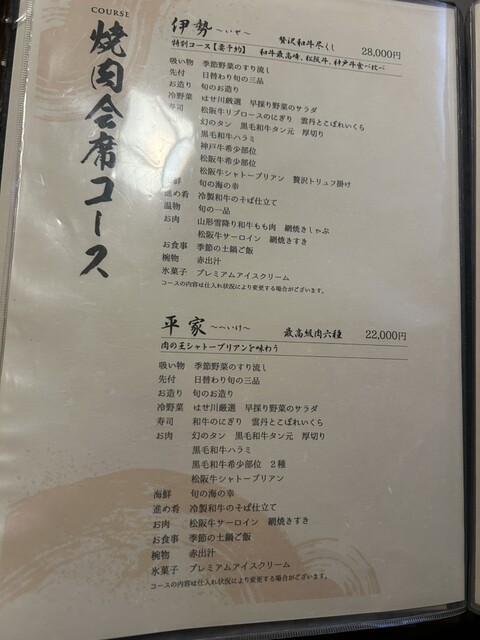 COURSE
焼肉会席コース
伊勢 ～いせ～ 贅沢和牛尽くし 28,000円
特別コース【要予約】 和牛最高峰、松阪牛、神戸牛食べ比べ
吸い物 季節野菜のすり流し
先付 日替わり旬の三品
お造り 旬のお造り
冷野菜 はせ川厳選 早採り野菜のサラダ
寿司 松阪牛リブロースのにぎり 雲丹とこぼれいくら
幻のタン 黒毛和牛タン元 厚切り
黒毛和牛ハラミ
神戸牛希少部位
松阪牛希少部位
松阪牛シャトーブリアン 贅沢トリュフ掛け
鮮 旬の海の幸
進め肴 冷製和牛のそば仕立て
温物 旬の一品
お肉 山形雪降り和牛もも肉 網焼きしゃぶ
松阪牛サーロイン 網焼きすき
お食事 季節の土鍋ご飯
椀物 赤出汁
氷菓子 プレミアムアイスクリーム
コースの内容は仕入れ状況により変更する場合がございます。
平家 ～へいけ～ 最高級肉六種 22,000円
肉の王シャトーブリアンを味わう
吸い物 季節野菜のすり流し
先付 日替わり旬の三品
お造り 旬のお造り
冷野菜 はせ川厳選 早採り野菜のサラダ
寿司 和牛のにぎり 雲丹とこぼれいくら
お肉 幻のタン 黒毛和牛タン元 厚切り
黒毛和牛ハラミ
黒毛和牛希少部位 2種
松阪牛シャトーブリアン
海鮮 旬の海の幸
進め肴 冷製和牛のそば仕立て
お肉 松阪牛サーロイン 網焼きすき
お食事 季節の土鍋ご飯
椀物 赤出汁
氷菓子 プレミアムアイスクリーム
コースの内容は仕入れ状況により変更する場合がございます。